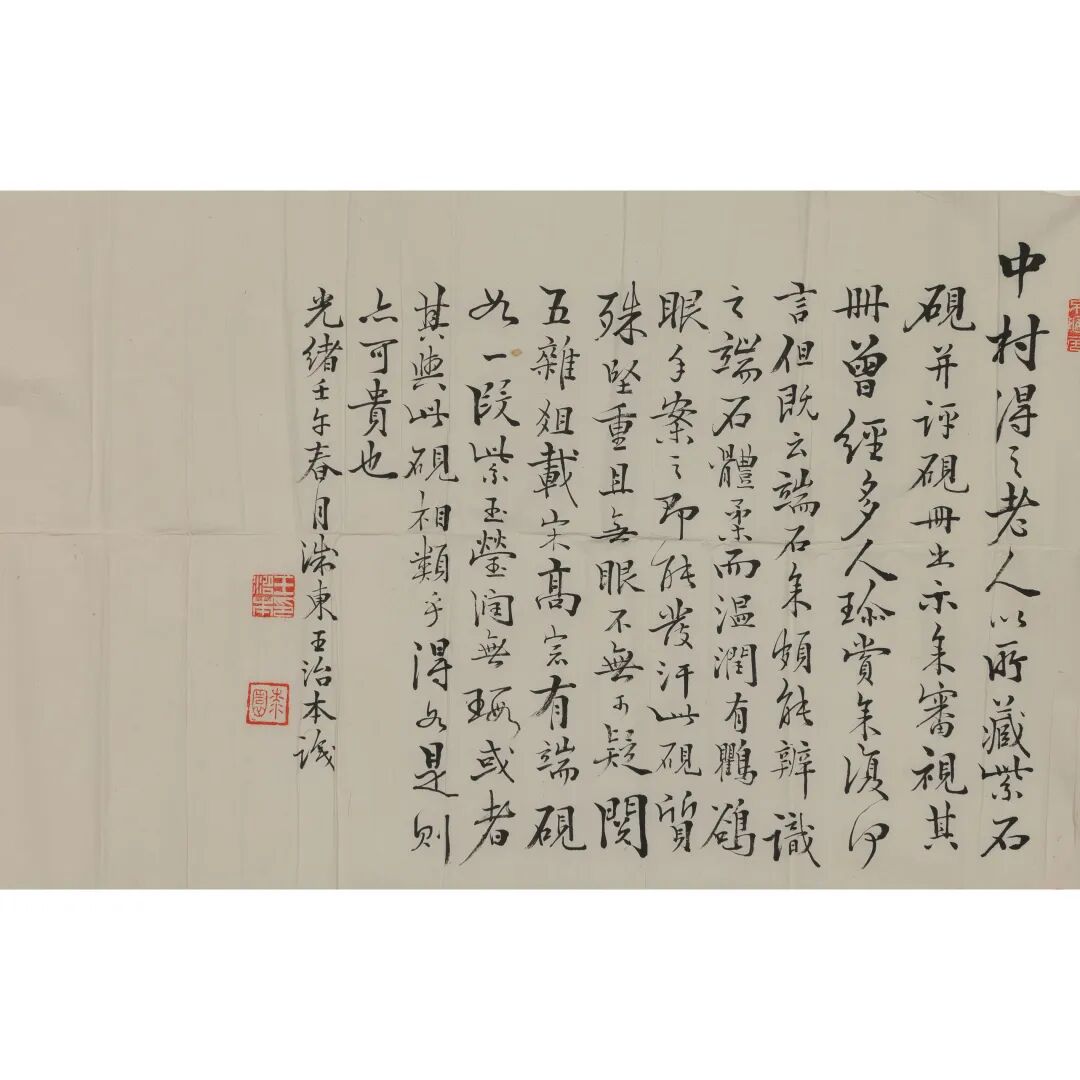 中村得之老人以所藏紫石
硯并評硯冊出示余審視其
冊曾經多人珍賞余復何
言但既云端石余頗能辨識
之端石體柔而温潤有鸜鵒
眼手案之即能發汗此硯質
殊堅重且無眼不無可疑閱
五雜俎載宋高宗有端硯
如一段紫玉瑩潤無瑕或者
其與此硯相類乎得如是則
亦可貴也
光緒壬午春月浙東王治本識
王治本印
桼園